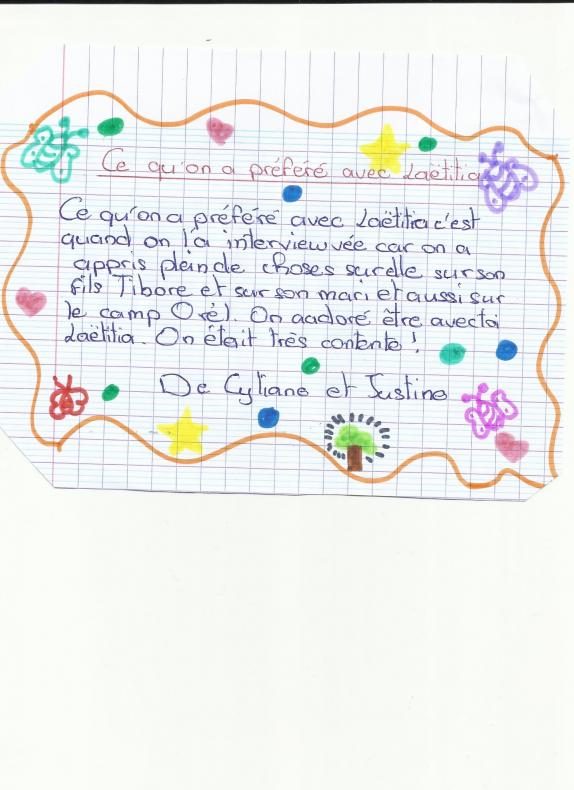 Ce qu'on a préféré avec Laëtitia
Ce qu'on a préféré avec Laëtitia c'est
quand on l'a interviewvée car on a
appris plein de choses sur elle sur son
fils Tibore et sur son mari et aussi sur
le camp Oxél. On a adoré être avec toi
Laëtitia. On était très contente !
De Cyliane et Justine